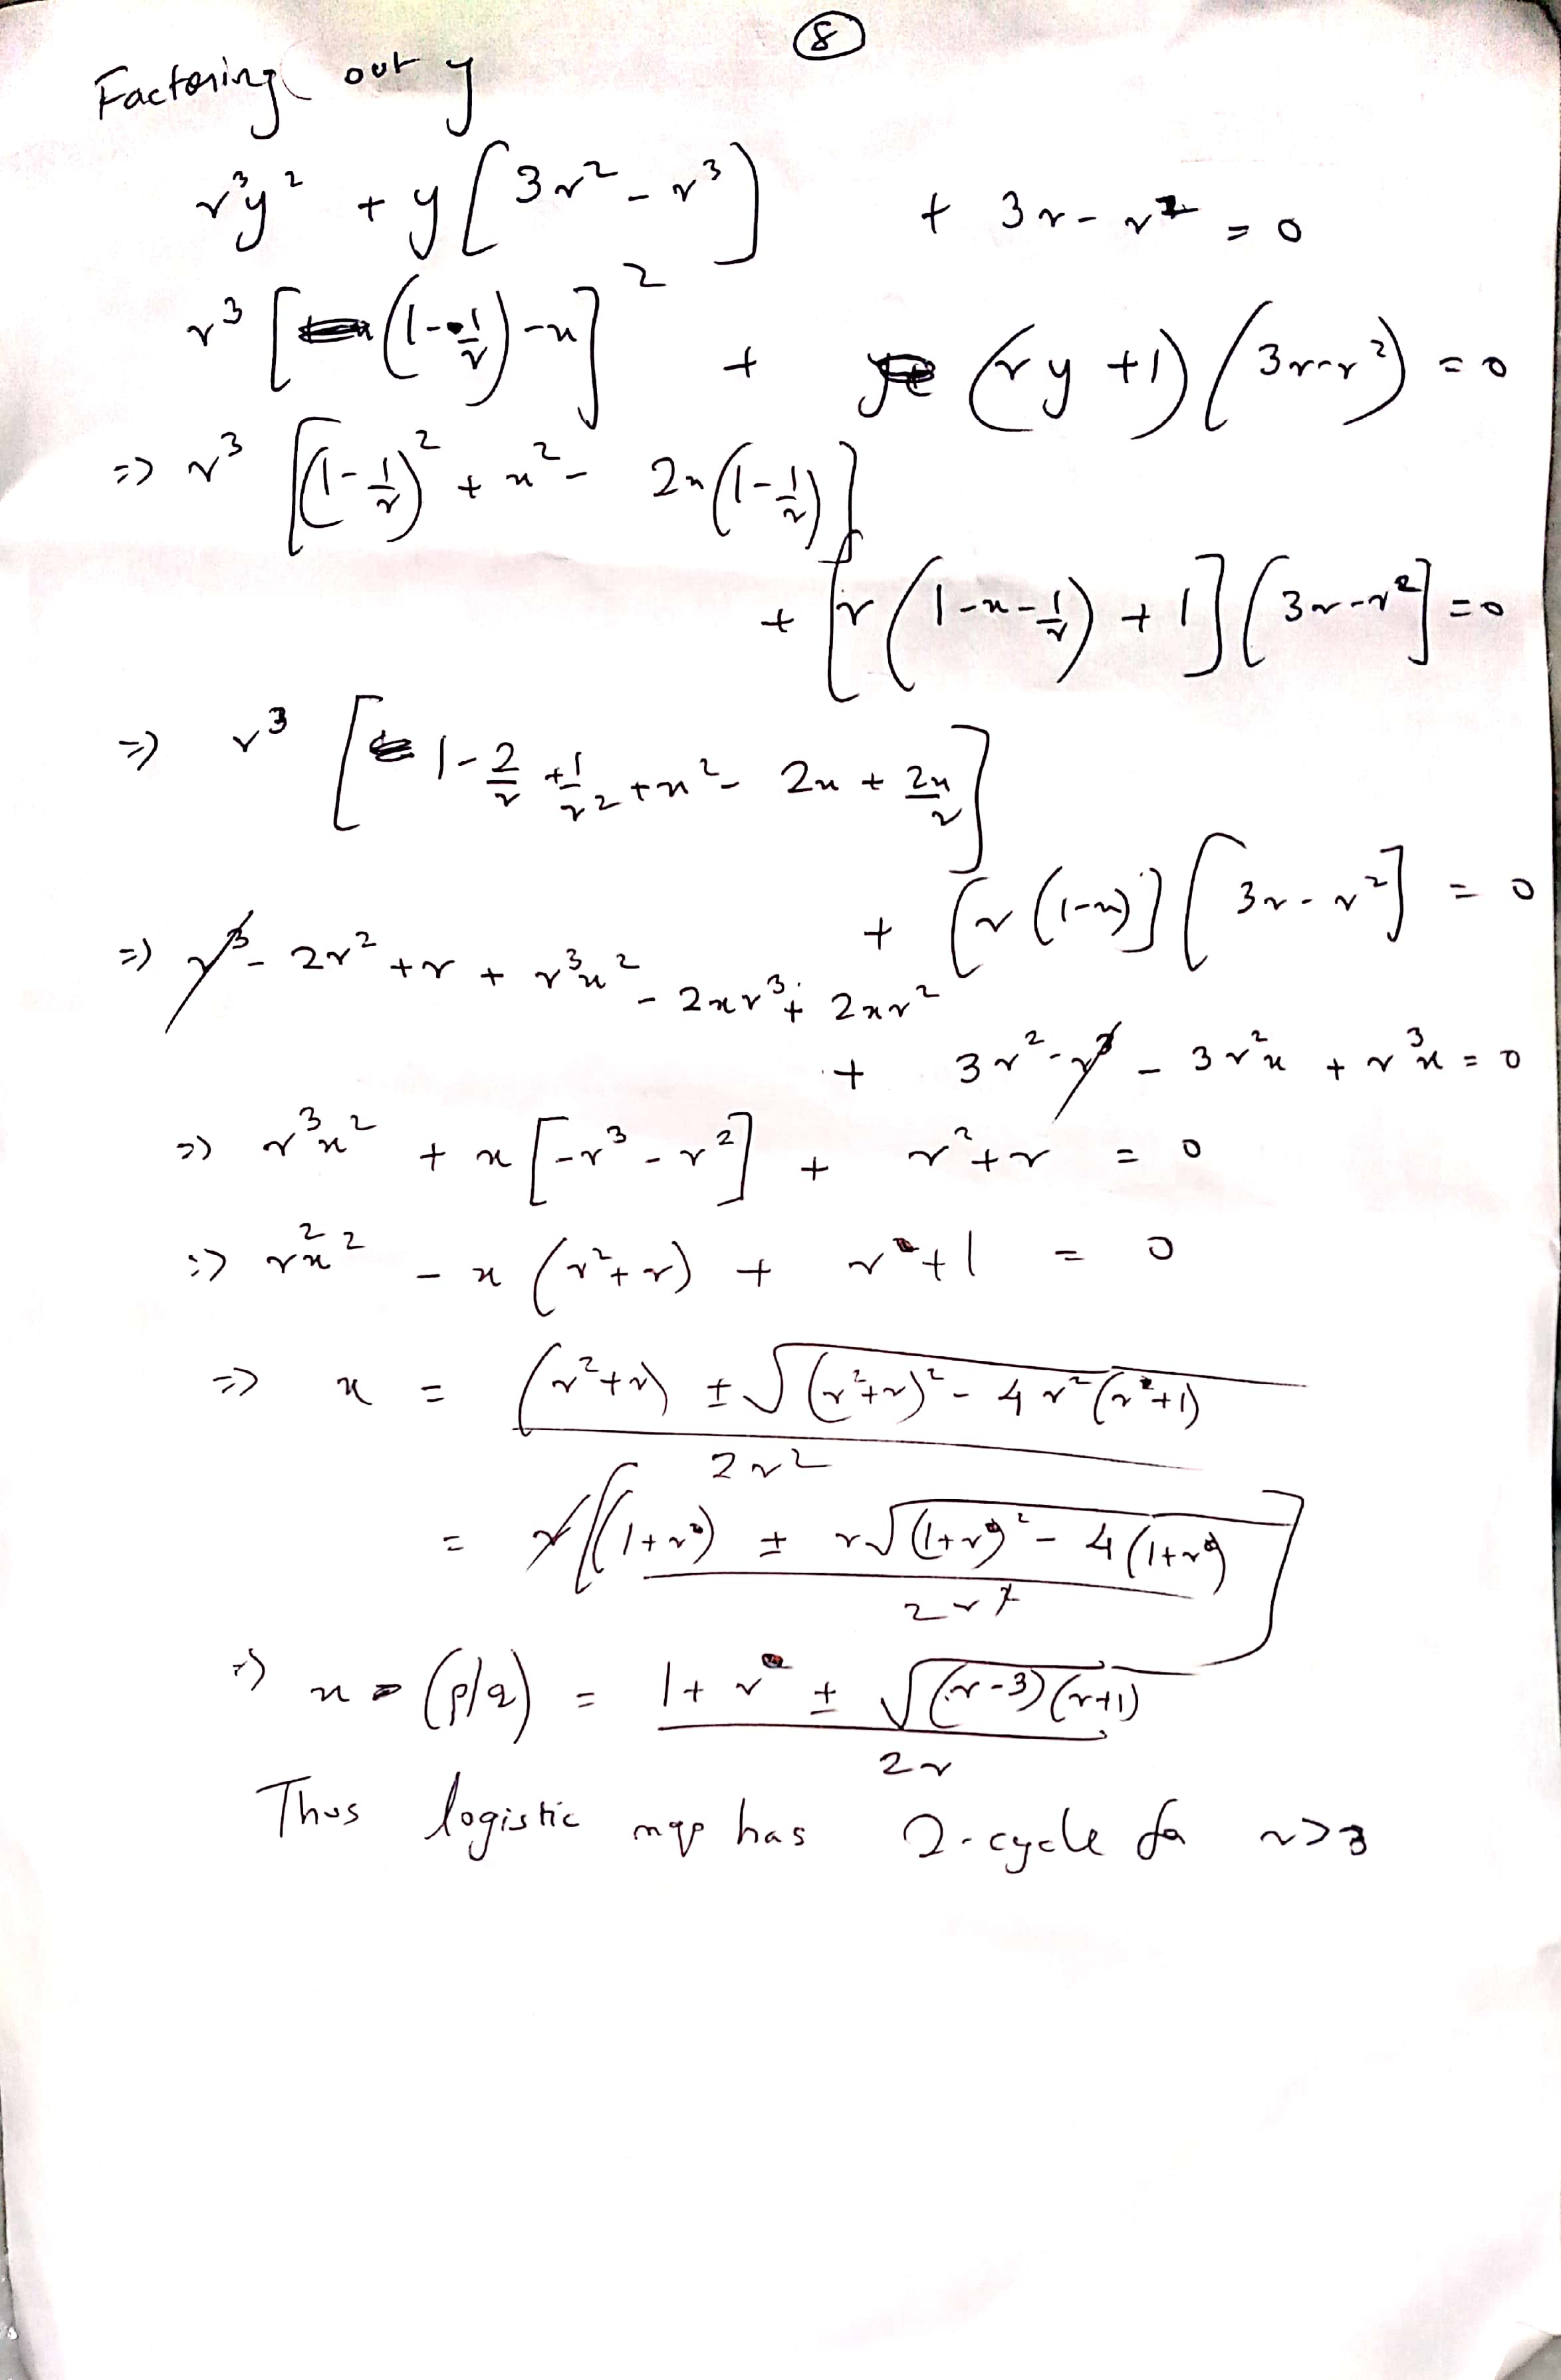 ⑧
Factoring out y
r³y² + y[3r² - r³] + 3r - r² = 0
r³[(1 - 1/r) - x]² + (ry + 1)(3r - r²) = 0
=> r³[(1 - 1/r)² + x² - 2x(1 - 1/r)]
+ [r(1 - x - 1/r) + 1][3r - r²] = 0
=> r³[1 - 2/r + 1/r² + x² - 2x + 2x/r]
+ [r(1-x)][3r - r²] = 0
=> r³ - 2r² + r + r³x² - 2xr³ + 2xr²
+ 3r² - r³ - 3r²x + r³x = 0
=> r³x² + x[-r³ - r²] + r² + r = 0
=> r²x² - x(r² + r) + r + 1 = 0
=> x = ((r² + r) ± √((r² + r)² - 4r²(r + 1))) / 2r²
= r[(1 + r) ± r√((1 + r)² - 4(1 + r))] / 2r²
=> x = (p/q) = (1 + r ± √((r-3)(r+1))) / 2r
Thus logistic map has 2-cycle for r>3